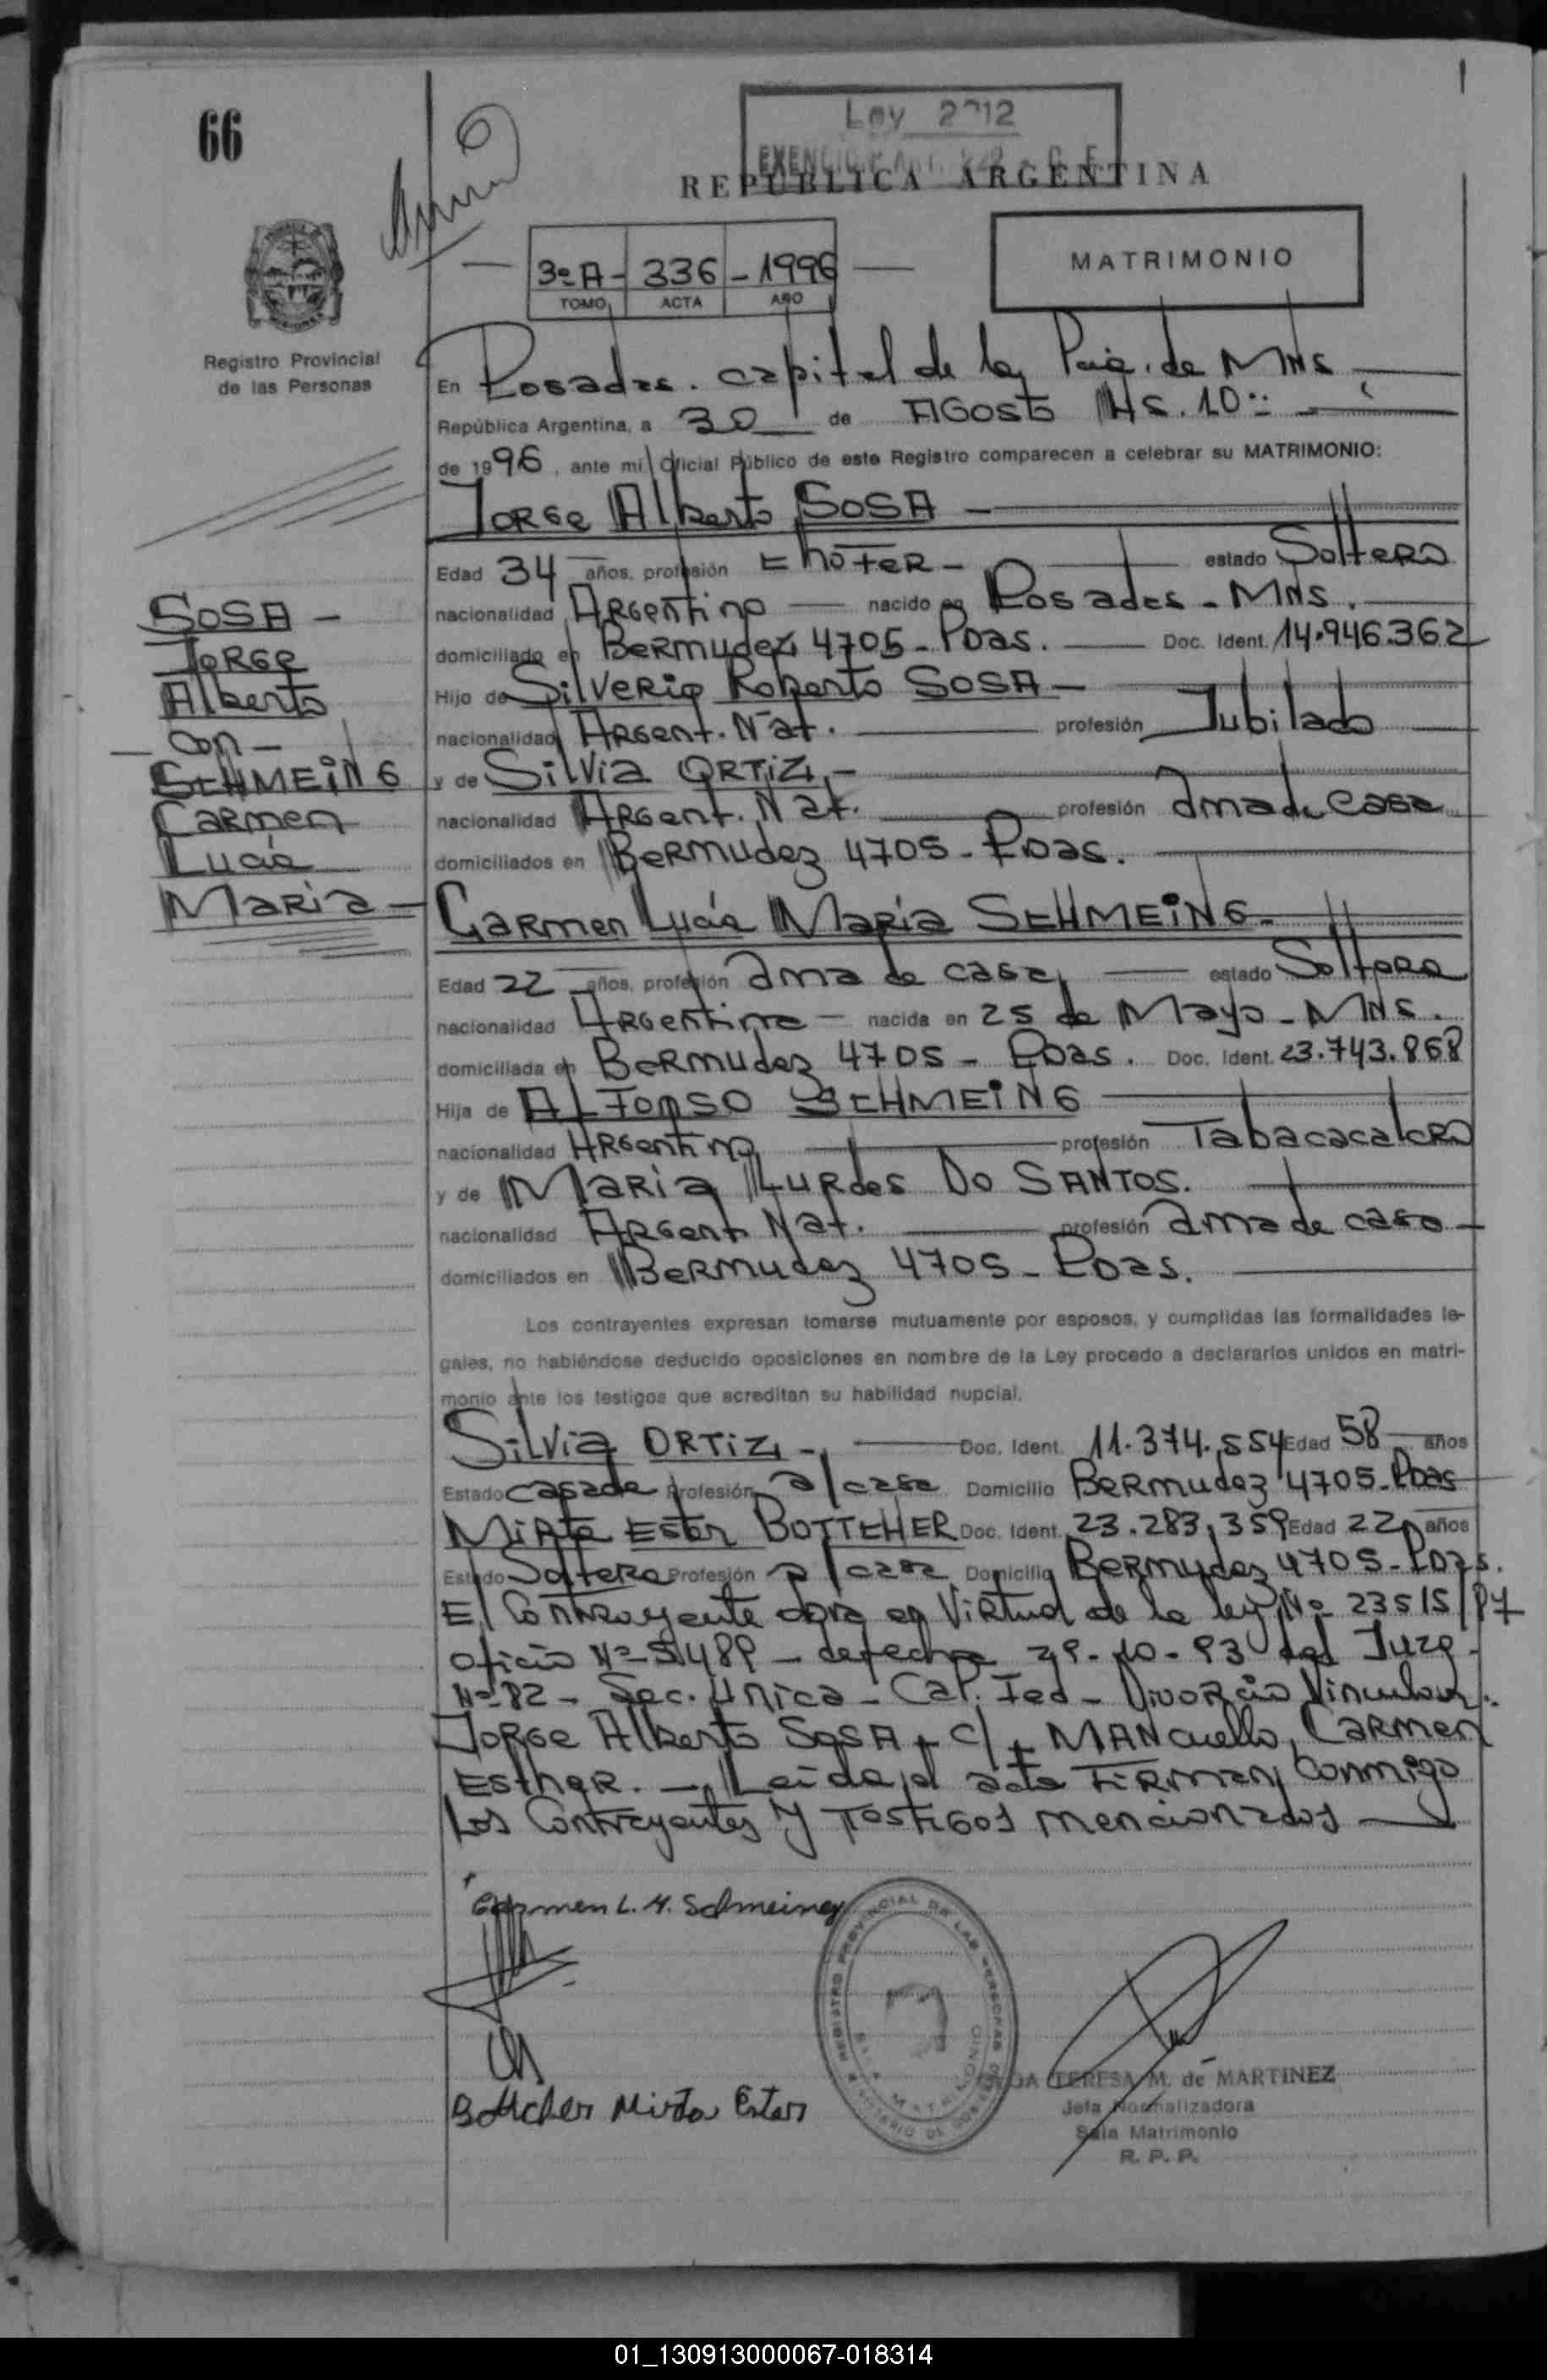 66
Ley 2212
REPUBLICA ARGENTINA
3º A - 336 - 1996
TOMO ACTA AÑO
MATRIMONIO
Registro Provincial
de las Personas
En Posadas. capital de la de MNS
República Argentina, a 30 de AGosto Hs. 10
de 1996, ante mi, Oficial Público de este Registro comparecen a celebrar su MATRIMONIO:
Jorge Alberto SOSA -
Edad 34 años, profesión Chofer - estado Soltero
nacionalidad Argentino nacido en Posadas - MNS.
domiciliado en Bermudez 4705 - Pdas. Doc. Ident. 14.946.362
Hijo de Silverio Roberto SOSA -
nacionalidad Argent. Nat. profesión Jubilado
y de Silvia ORTIZ -
nacionalidad Argent. Nat. profesión ama de casa
domiciliados en Bermudez 4705 - Pdas.
SOSA -
Jorge
Alberto
- con -
SCHMEING
Carmen
Lucía
Maria -
Carmen Lucía Maria SCHMEING -
Edad 22 años, profesión ama de casa estado Soltera
nacionalidad Argentina - nacida en 25 de Mayo - MNS.
domiciliada en Bermudez 4705 - Pdas. Doc. Ident. 23.743.868
Hija de Alfonso SCHMEING
nacionalidad Argentino profesión
y de Maria Lurdes Do SANTOS.
nacionalidad Argent. Nat. profesión ama de casa -
domiciliados en Bermudez 4705 - Pdas.
Los contrayentes expresan tomarse mutuamente por esposos, y cumplidas las formalidades le-
gales, no habiéndose deducido oposiciones en nombre de la Ley procedo a declararlos unidos en matri-
monio ante los testigos que acreditan su habilidad nupcial.
Silvia ORTIZ - Doc. Ident. 11.374.554 Edad 58 años
Estado casada Profesión a/casa Domicilio Bermudez 4705 - Pdas
Mirta Ester BOTTCHER Doc. Ident. 23.283.359 Edad 22 años
Estado Soltera Profesión a/casa Domicilio Bermudez 4705 - Pdas.
El Contrayente en Virtud de la ley Nº 23515/87
Oficio Nº 51489 - de fecha 29-10-93 del Juzg.
Nº 82 - Sec. Unica - Cap. Fed - Divorcio Vincular.
Jorge Alberto SOSA c/ MANcuello, Carmen
Esther. - Leída el acta Firman Conmigo
Los Contrayentes y Testigos mencionados
Carmen L. M. Schmeing
Bottcher Mirta Ester
REGISTRO PROVINCIAL DE LAS PERSONAS
TERESA M. de MARTINEZ
Jefa Normalizadora
Sala Matrimonio
R. P. P.
01_130913000067-018314